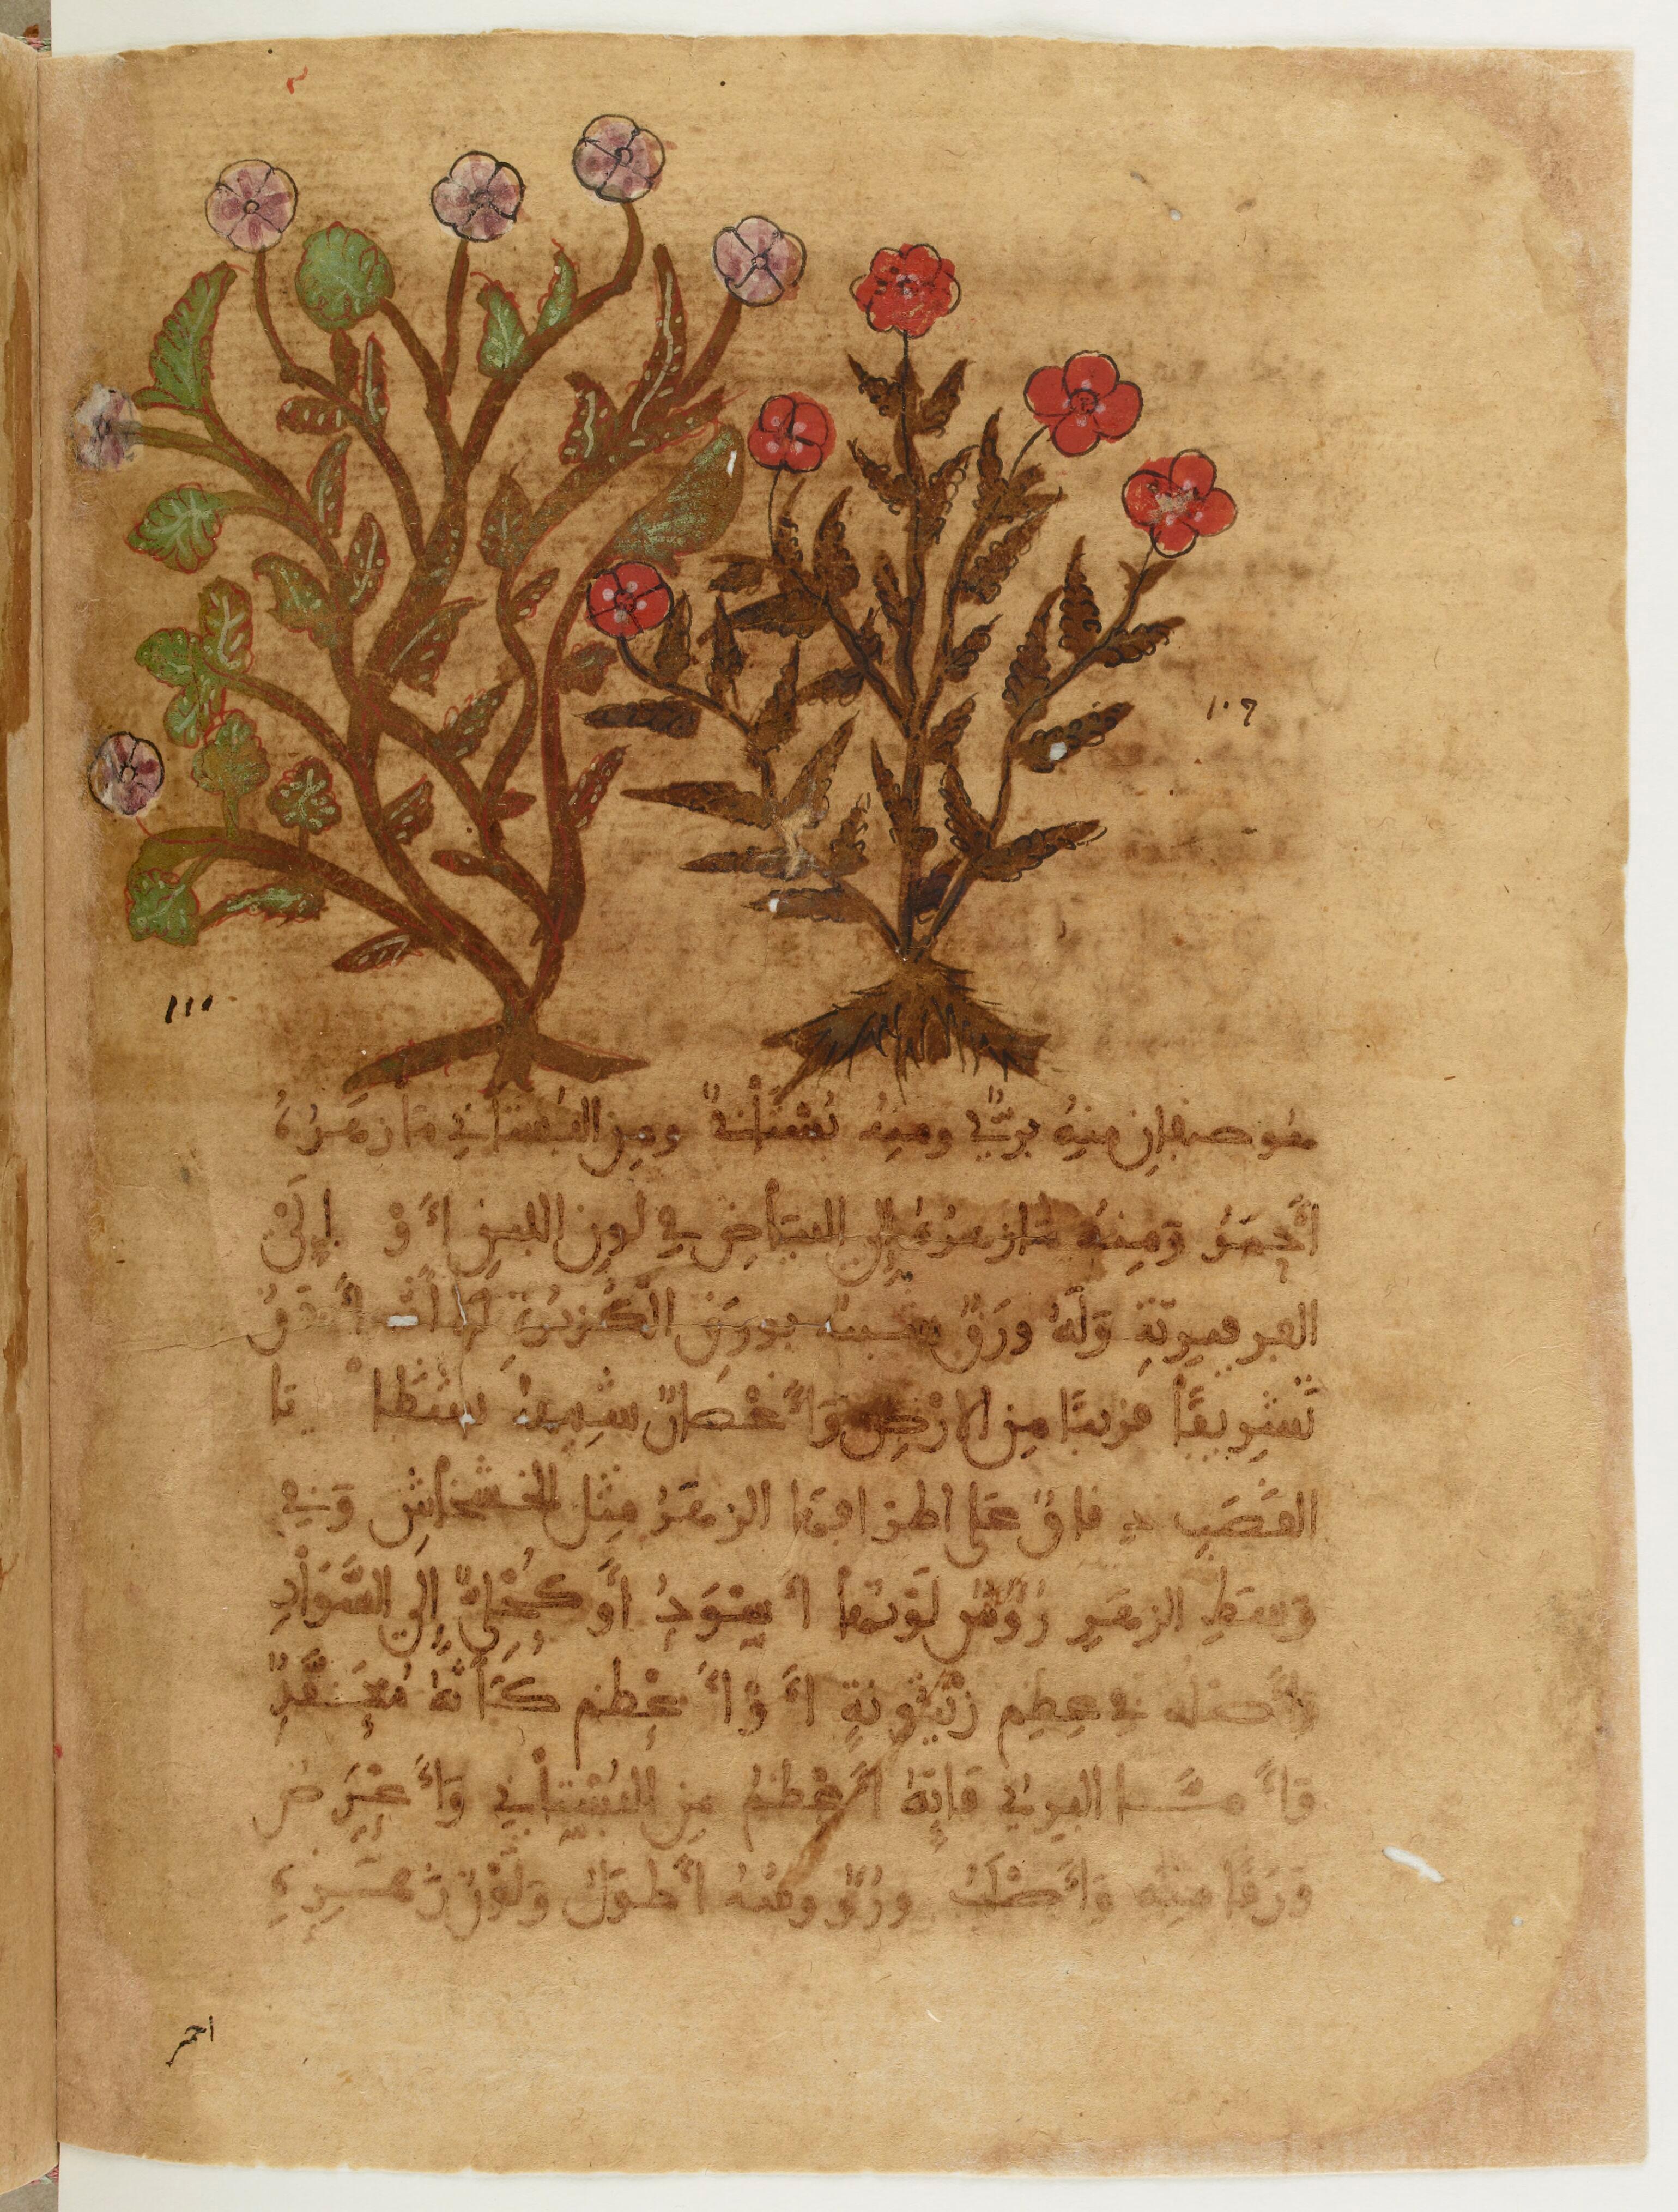 ١٠٩
١١١
هو صنفان منهُ برّيٌّ ومنهُ بُسْتَانيٌّ ومِن البُستاني مَا زهَرُهُ
أَحمَرُ وَمِنهُ مَا زهرُهُ إِلى البيَاضِ في لونِ اللبنِ أَوْ إِلَى
الفرفيريّةِ وَلَهُ ورَقٌ شبيهٌ بورَقِ الكُزبُرَةِ إلا أنه أَدَقُّ
تَشرِيفًا قريبًا مِن الارْضِ وَأَغْصَانٌ شبيهةٌ
القَصَبِ دِقاقٌ على اطرافها الزهَرُ مِثل الخشخاشِ وَفي
وَسَطِ الزهرِ رُؤُسٌ لَوْنها أَسْوَدُ أَو كُحْلِيٌّ إِلى السَّوَادِ
وَأَصلهُ في عِظمِ زَيْتُونَةٍ أَوْ أَعْظم كَأنّهُ مُعَقَّدٌ
وَأَمّا البرّي فَإِنّهُ أَعْظمُ مِن البُسْتَاني وَأَعْرَضُ
وَرَقًا منهُ وَأَصْلَبُ ورُؤُوسُهُ أَطوَلُ وَلَوْنُ زَهَرِهِ
احمر